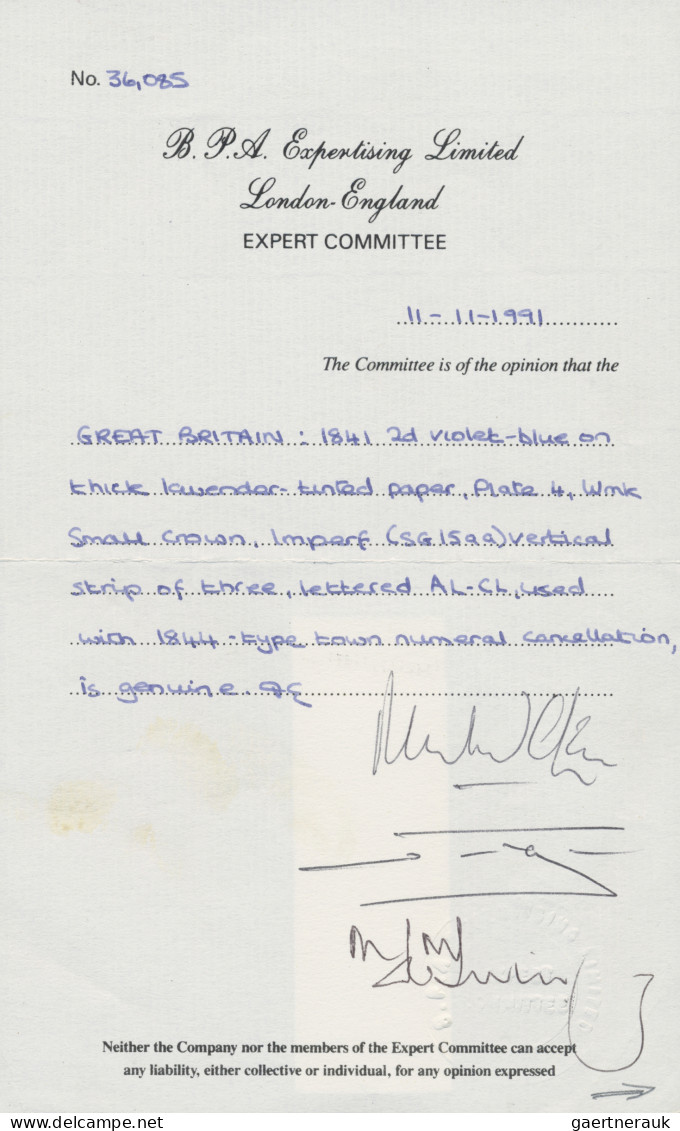 No. 36,085
B. P. A. Expertising Limited
London-England
EXPERT COMMITTEE
11-11-1991
The Committee is of the opinion that the
GREAT BRITAIN: 1841 2d violet-blue on
thick lavender-tinted paper, Plate 4, Wmk
Small Crown, Imperf (SG15aa) vertical
strip of three, lettered AL-CL, used
with 1844-type town numeral cancellation,
is genuine.
Neither the Company nor the members of the Expert Committee can accept
any liability, either collective or individual, for any opinion expressed
www.gaertnerauk